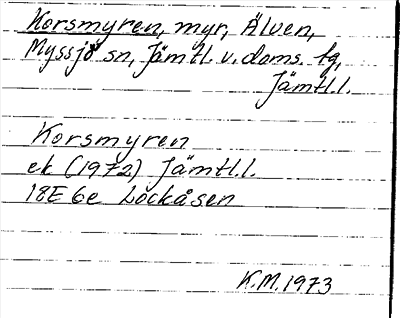 Korsmyren, myr, Älven,
Myssjö sn, Jämtl. v. doms. tg,
Jämtl.l.
Korsmyren
ek (1972) Jämtl.l.
18E 6e Lockåsen
K.M. 1973